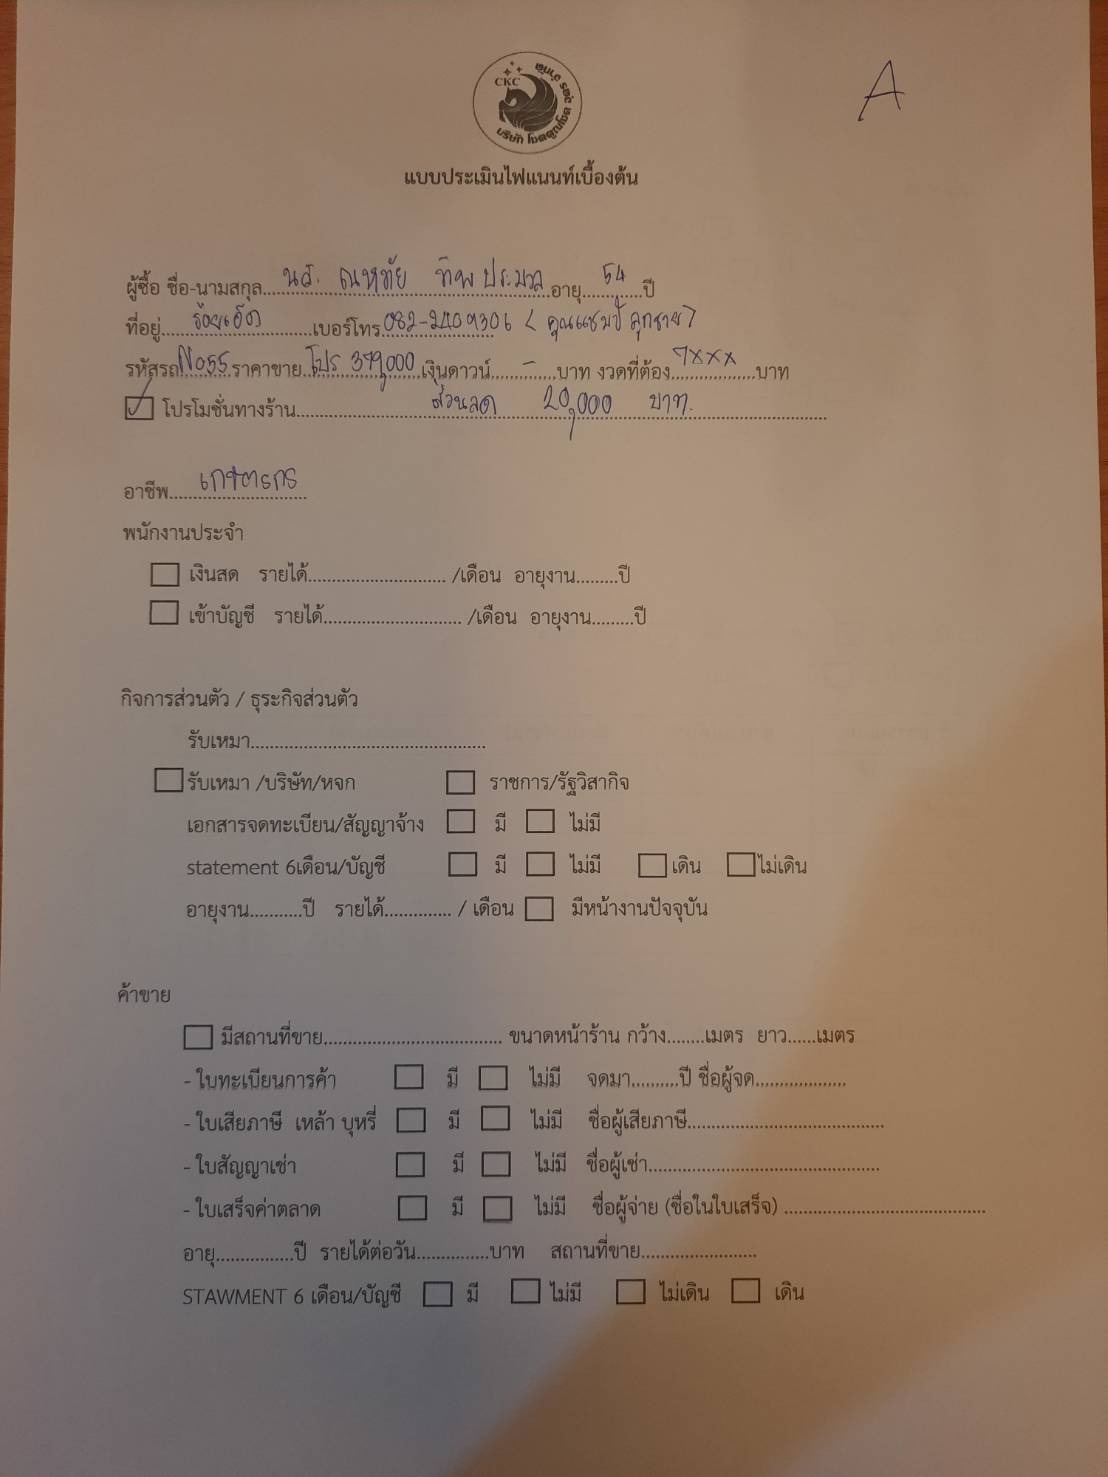 A
CKC
แบบประเมินไฟแนนท์เบื้องต้น
ผู้ซื้อ ชื่อ-นามสกุล....นส. ณหทัย ทิพประมวล....อายุ....54....ปี
ที่อยู่....ร้อยเอ็ด....เบอร์โทร 082-2409306 ( คุณแชมป์ ลูกชาย )
รหัสรถ N055 ราคาขาย โปร 379,000 เงินดาวน์....-....บาท งวดที่ต้อง....7xxx....บาท
โปรโมชั่นทางร้าน....ส่วนลด 20,000 บาท.
อาชีพ....เกษตรกร
พนักงานประจำ
เงินสด รายได้.......................... /เดือน อายุงาน.........ปี
เข้าบัญชี รายได้.......................... /เดือน อายุงาน.........ปี
กิจการส่วนตัว / ธุระกิจส่วนตัว
รับเหมา.............................................
รับเหมา /บริษัท/หจก ราชการ/รัฐวิสากิจ
เอกสารจดทะเบียน/สัญญาจ้าง มี ไม่มี
statement 6เดือน/บัญชี มี ไม่มี เดิน ไม่เดิน
อายุงาน...........ปี รายได้.............. / เดือน มีหน้างานปัจจุบัน
ค้าขาย
มีสถานที่ขาย.................................. ขนาดหน้าร้าน กว้าง........เมตร ยาว......เมตร
- ใบทะเบียนการค้า มี ไม่มี จดมา..........ปี ชื่อผู้จด...................
- ใบเสียภาษี เหล้า บุหรี่ มี ไม่มี ชื่อผู้เสียภาษี..........................................
- ใบสัญญาเช่า มี ไม่มี ชื่อผู้เช่า.................................................
- ใบเสร็จค่าตลาด มี ไม่มี ชื่อผู้จ่าย (ชื่อในใบเสร็จ) ...........................................
อายุ................ปี รายได้ต่อวัน...............บาท สถานที่ขาย.........................
STAWMENT 6 เดือน/บัญชี มี ไม่มี ไม่เดิน เดิน